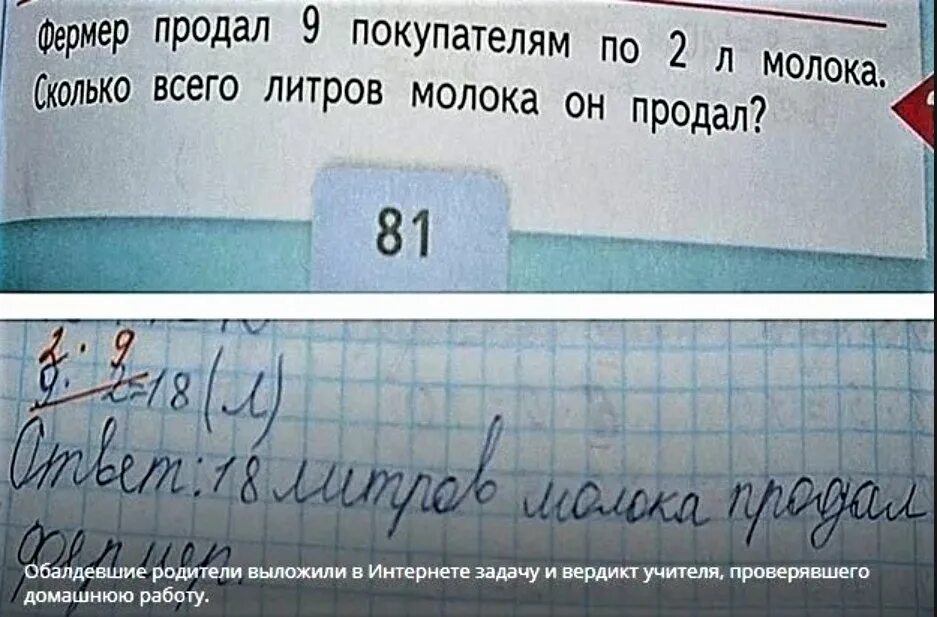 Фермер продал 9 покупателям по 2 л молока.
Сколько всего литров молока он продал?
81
2 · 9
9 · 2=18 (л)
Ответ: 18 литров молока продал
фермер
Обалдевшие родители выложили в Интернете задачу и вердикт учителя, проверявшего
домашнюю работу.